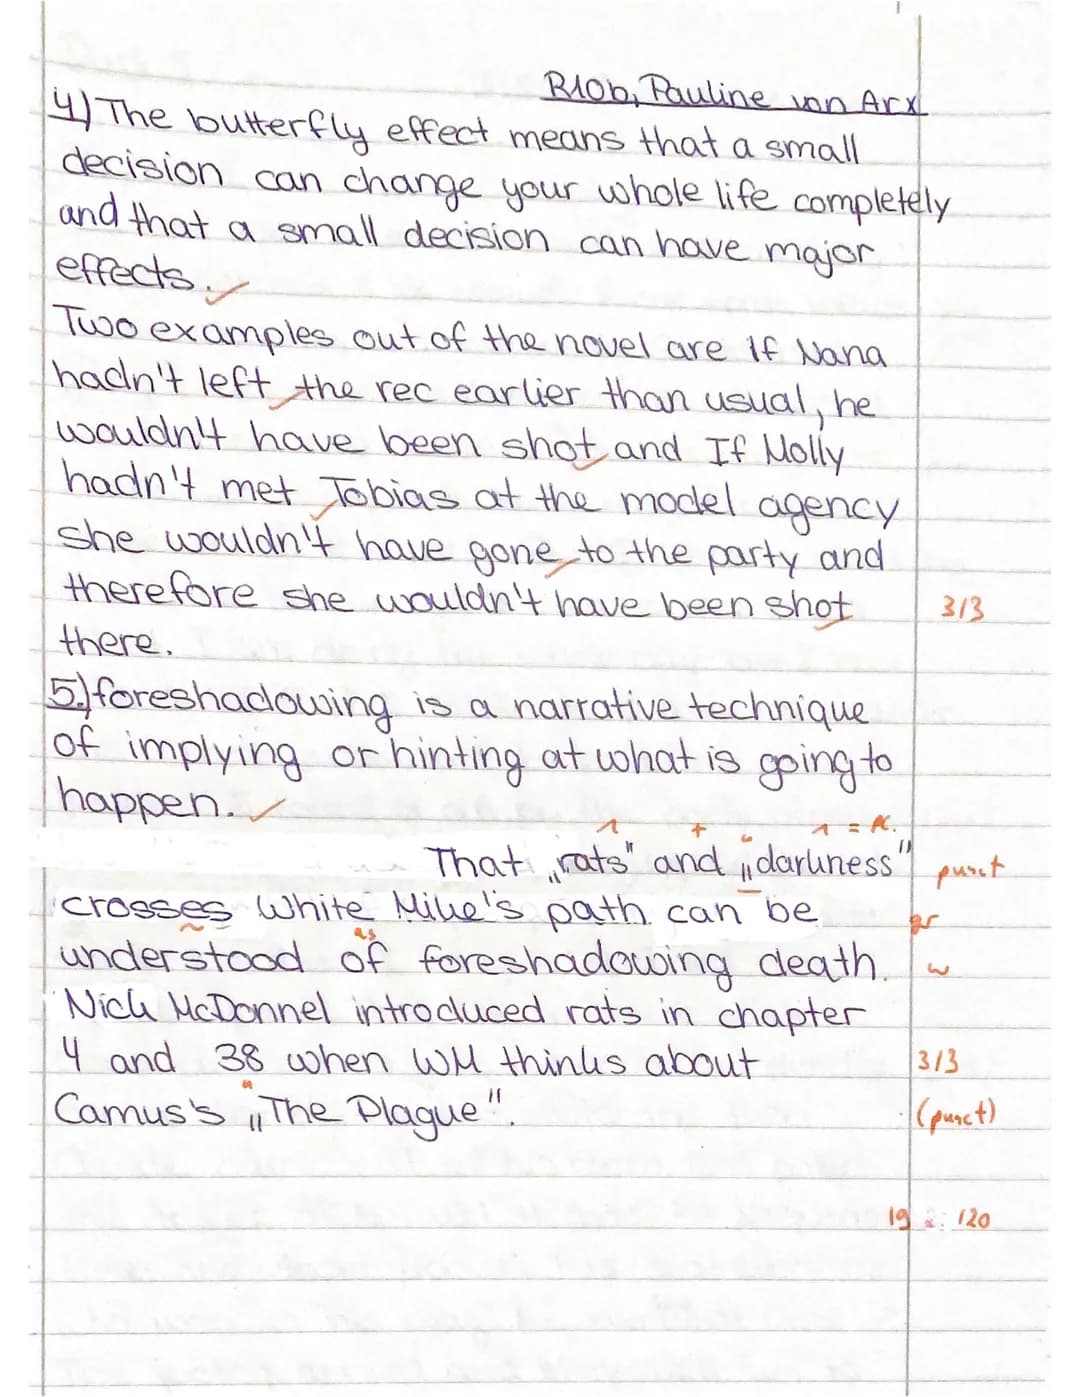 R10b, Pauline von Arx
4) The butterfly effect means that a small
decision can change your whole life completely
and that a small decision can have major
effects.
Two examples out of the novel are If Nana
hadn't left the rec earlier than usual, he
wouldn't have been shot and If Molly
hadn't met Tobias at the model agency
she wouldn't have gone to the party and
therefore she wouldn't have been shot
3/3
there.
5.) foreshadowing is a narrative technique
of implying or hinting at what is going to
happen.
1 + 1 = pl.
That „rats" and „darkness"
punct
crosses White Mike's path can be
gr
as
understood of foreshadowing death.
w
Nick McDonnel introduced rats in chapter
4 and 38 when WM thinks about
3/3
Camus's „The Plague".
(punct)
19 : 120